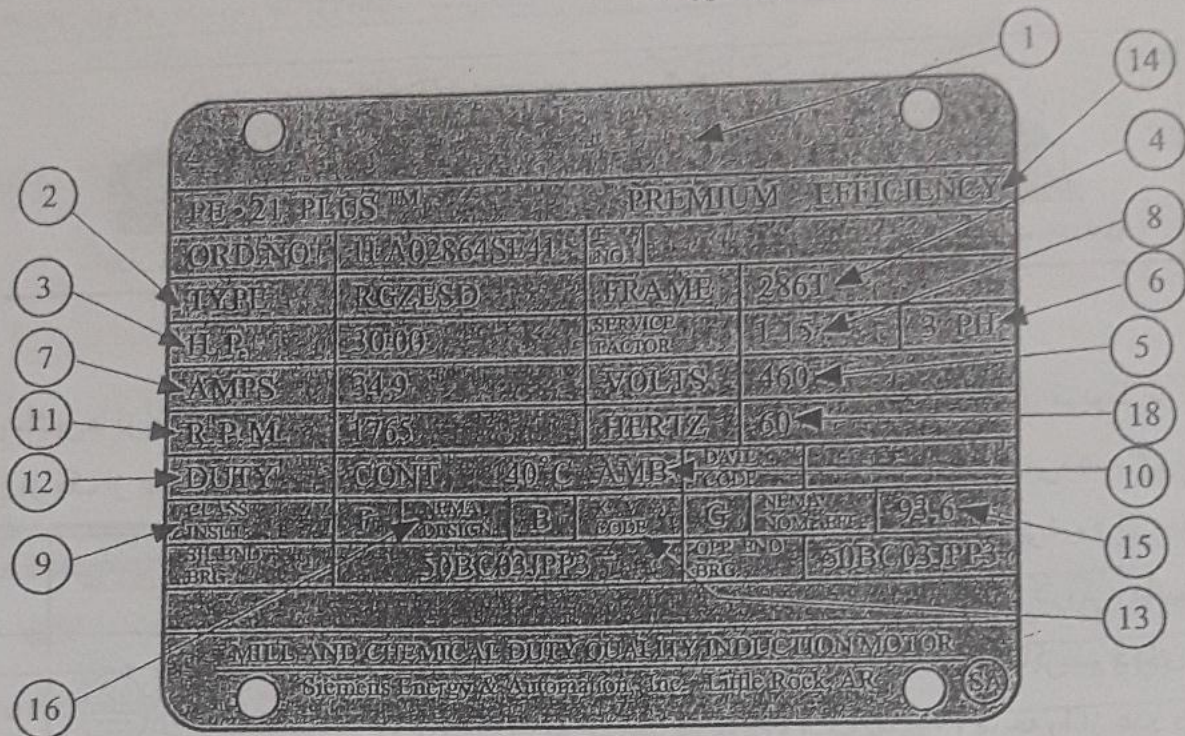 1
14
4
2
PE•21 PLUS™ PREMIUM EFFICIENCY
8
ORD.NO. 1LA02864SE41 NO.
3
TYPE RGZESD FRAME 286T
6
H.P. 30.00 SERVICE FACTOR 1.15 3 PH
7
AMPS 34.9 VOLTS 460
5
11
R.P.M. 1765 HERTZ 60
18
12
DUTY CONT. 40°C AMB. DATE CODE
10
CLASS INSUL. F NEMA DESIGN B K.V.A. CODE G NEMA NOM.EFF. 93.6
9
15
SH. END BRG. 50BC03JPP3 OPP. END BRG. 50BC03JPP3
13
MILL AND CHEMICAL DUTY QUALITY INDUCTION MOTOR
16
Siemens Energy & Automation, Inc. Little Rock, AR SA